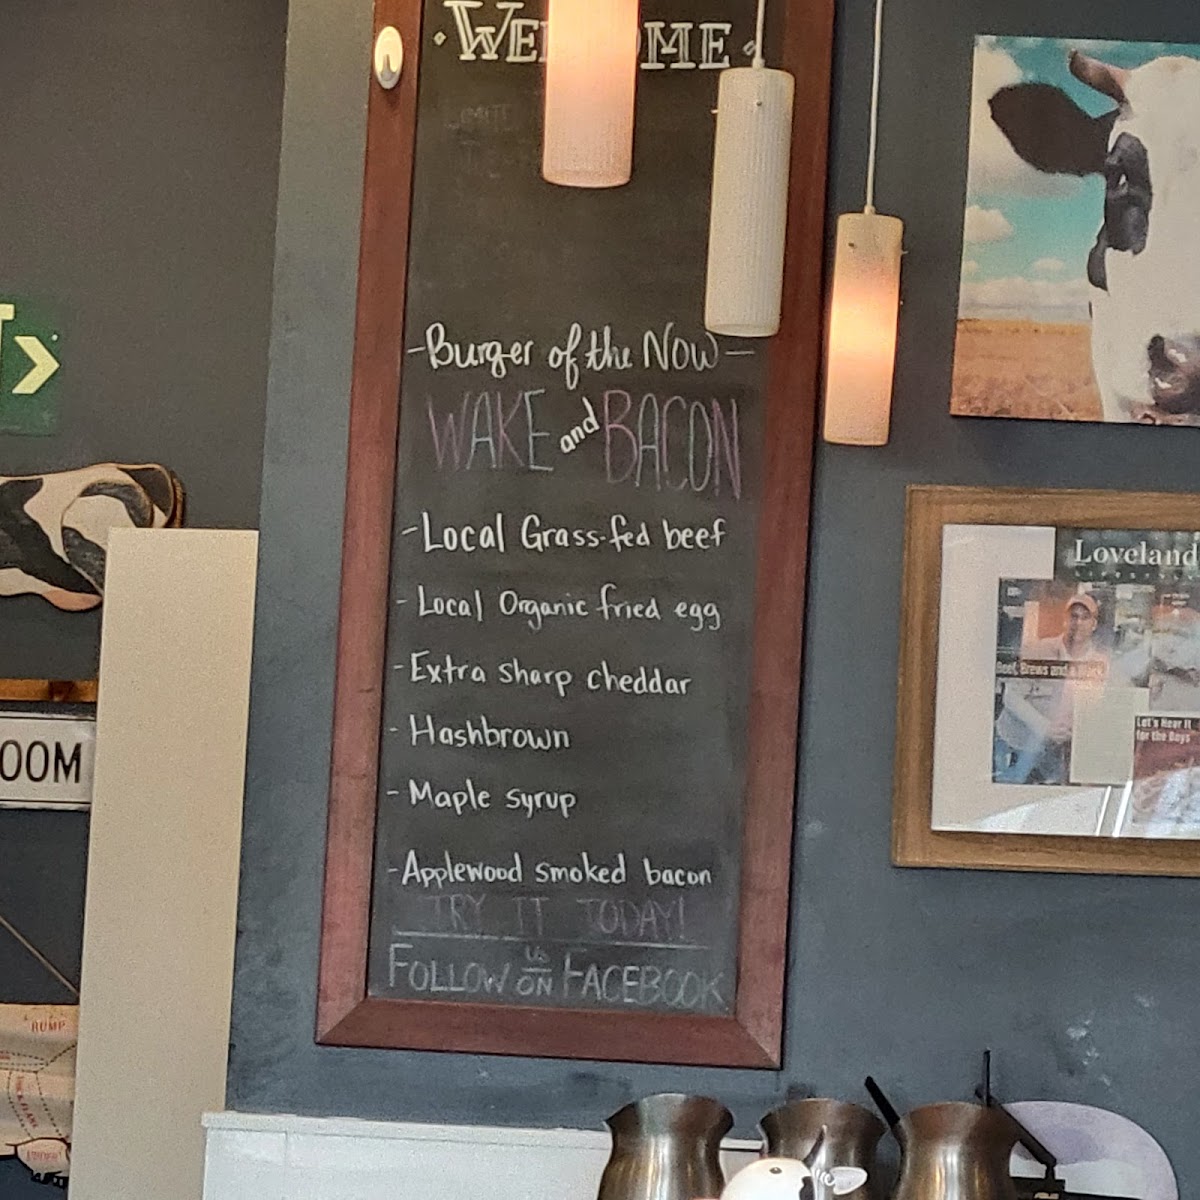 WELCOME
-Burger of the Now-
WAKE and BACON
-Local Grass-fed beef
-Local Organic fried egg
-Extra sharp cheddar
-Hashbrown
-Maple syrup
-Applewood smoked bacon
TRY IT TODAY!
FOLLOW us ON FACEBOOK
OOM
RUMP
Loveland
Beef, Brews and a
Let's Hear It
for the Boys